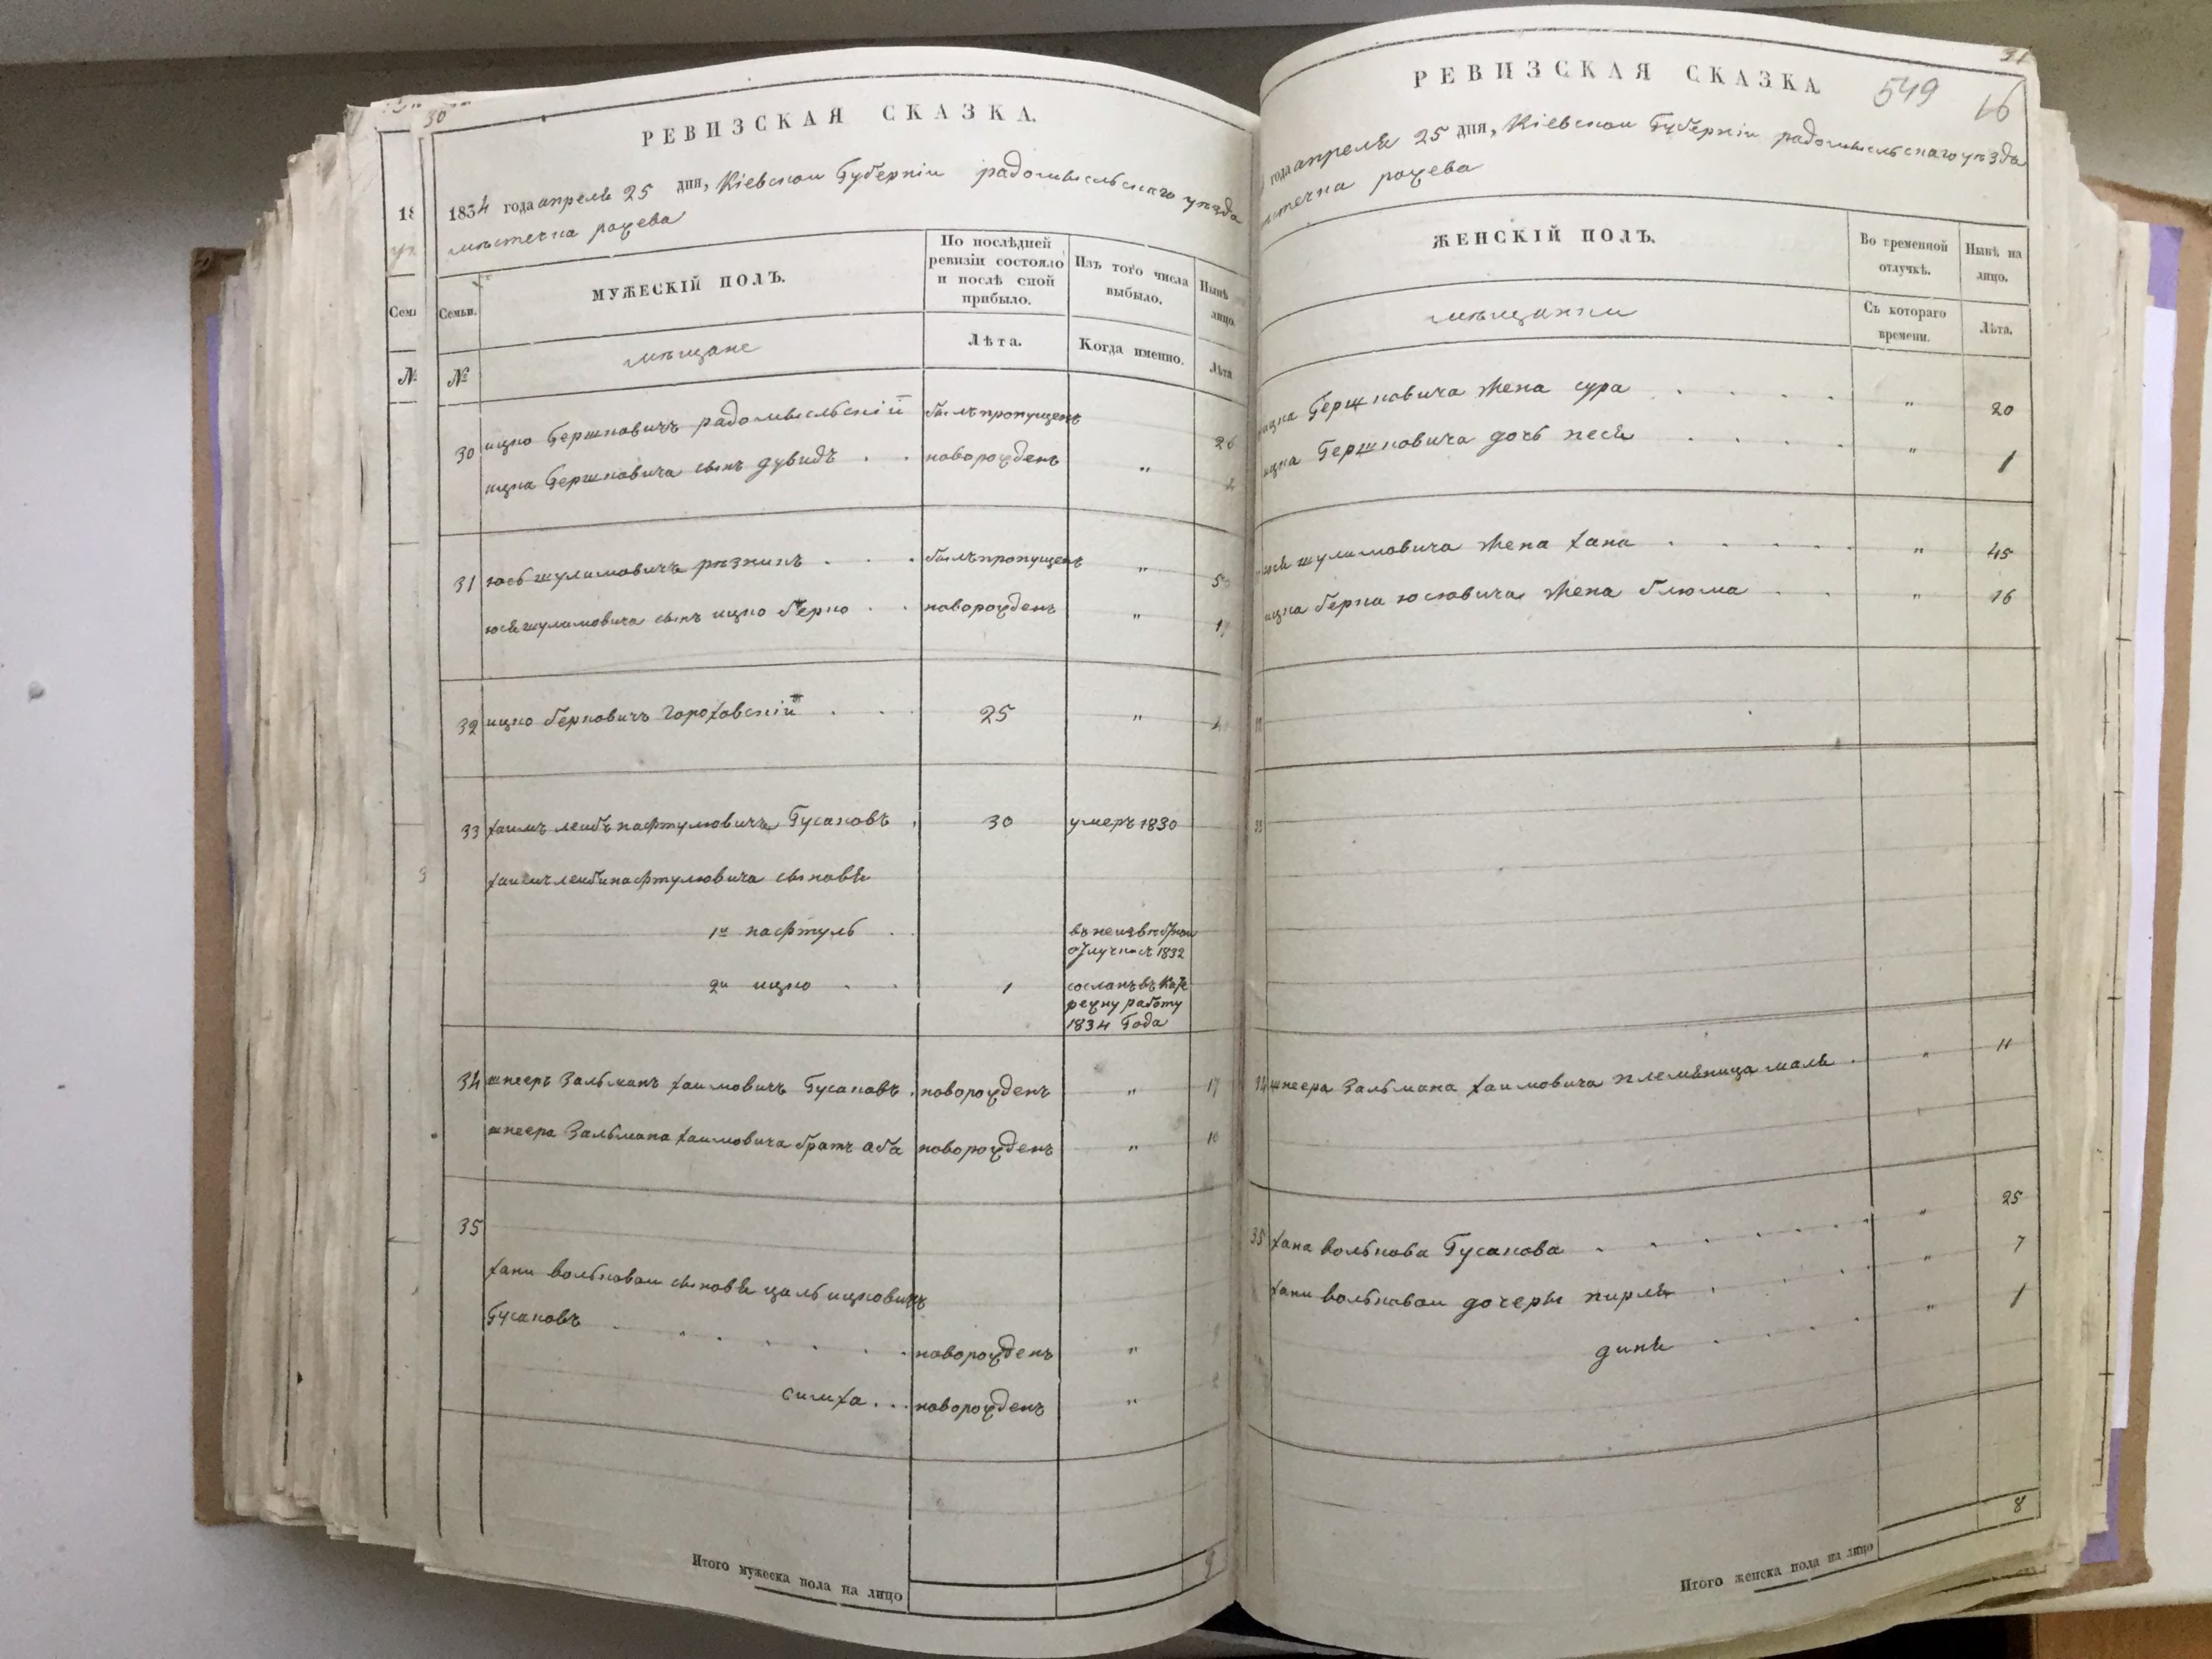 30
РЕВИЗСКАЯ СКАЗКА.
1834 года апреля 25 дня, Кіевской Губерніи радомысльскаго уѣзда
мѣстечка рожева
Семьи.
МУЖЕСКІЙ ПОЛЪ.
По послѣдней ревизіи состояло и послѣ сной прибыло.
Изъ того числа выбыло.
Нынѣ лицо.
№
мѣщане
Лѣта.
Когда именно.
Лѣта
30 ицко Гершковичъ радомысльскій былъ пропущенъ 26
ицка Гершковича сынъ дувидъ . . новорожденъ „
31 юсь шулимовичъ рѣзникъ . . . былъ пропущенъ „
юся шулимовича сынъ ицко берко . . новорожденъ „
32 ицко берковичъ гороховскій . . . 25 „
33 хаимъ лейбъ нафтулювичъ Гусаковъ . 30 умеръ 1830
хаимъ лейби нафтулювича сыновя
1й нафтуль . въ неизвѣстной
отлучкѣ съ 1832
2й ицко . . 1 сосланъ въ кате
режну работу
1834 Года
34 шнееръ Зальманъ хаимовичъ Гусаковъ . новорожденъ „ 17
шнеера Зальмана хаимовича братъ аба новорожденъ „ 10
35
хани вольковои сыновя цаль ицковичъ
Гусаковъ . . . . . . новорожденъ „
симха . . . новорожденъ „
Итого мужеска пола на лицо 9
31
РЕВИЗСКАЯ СКАЗКА
549
16
года апреля 25 дня, Кіевской Губерніи радомысльскаго уѣзда
мѣстечка рожева
ЖЕНСКІЙ ПОЛЪ.
Во временной отлучкѣ.
Нынѣ на лицо.
мѣщанки
Съ котораго времени.
Лѣта.
ицка Гершковича жена сура . . . . „ 20
ицка Гершковича дочь песя . . . . „ 1
юся шулимовича жена хана . . . . . „ 45
ицка берка юсювича жена блюма . . „ 16
33
34 шнеера Зальмана хаимовича племяница маля . „ 11
35 хана волькова Гусакова . . . . . . „ 25
хани вольковои дочеры пирля . . . . „ 7
диня . . . . „ 1
Итого женска пола на лицо 8